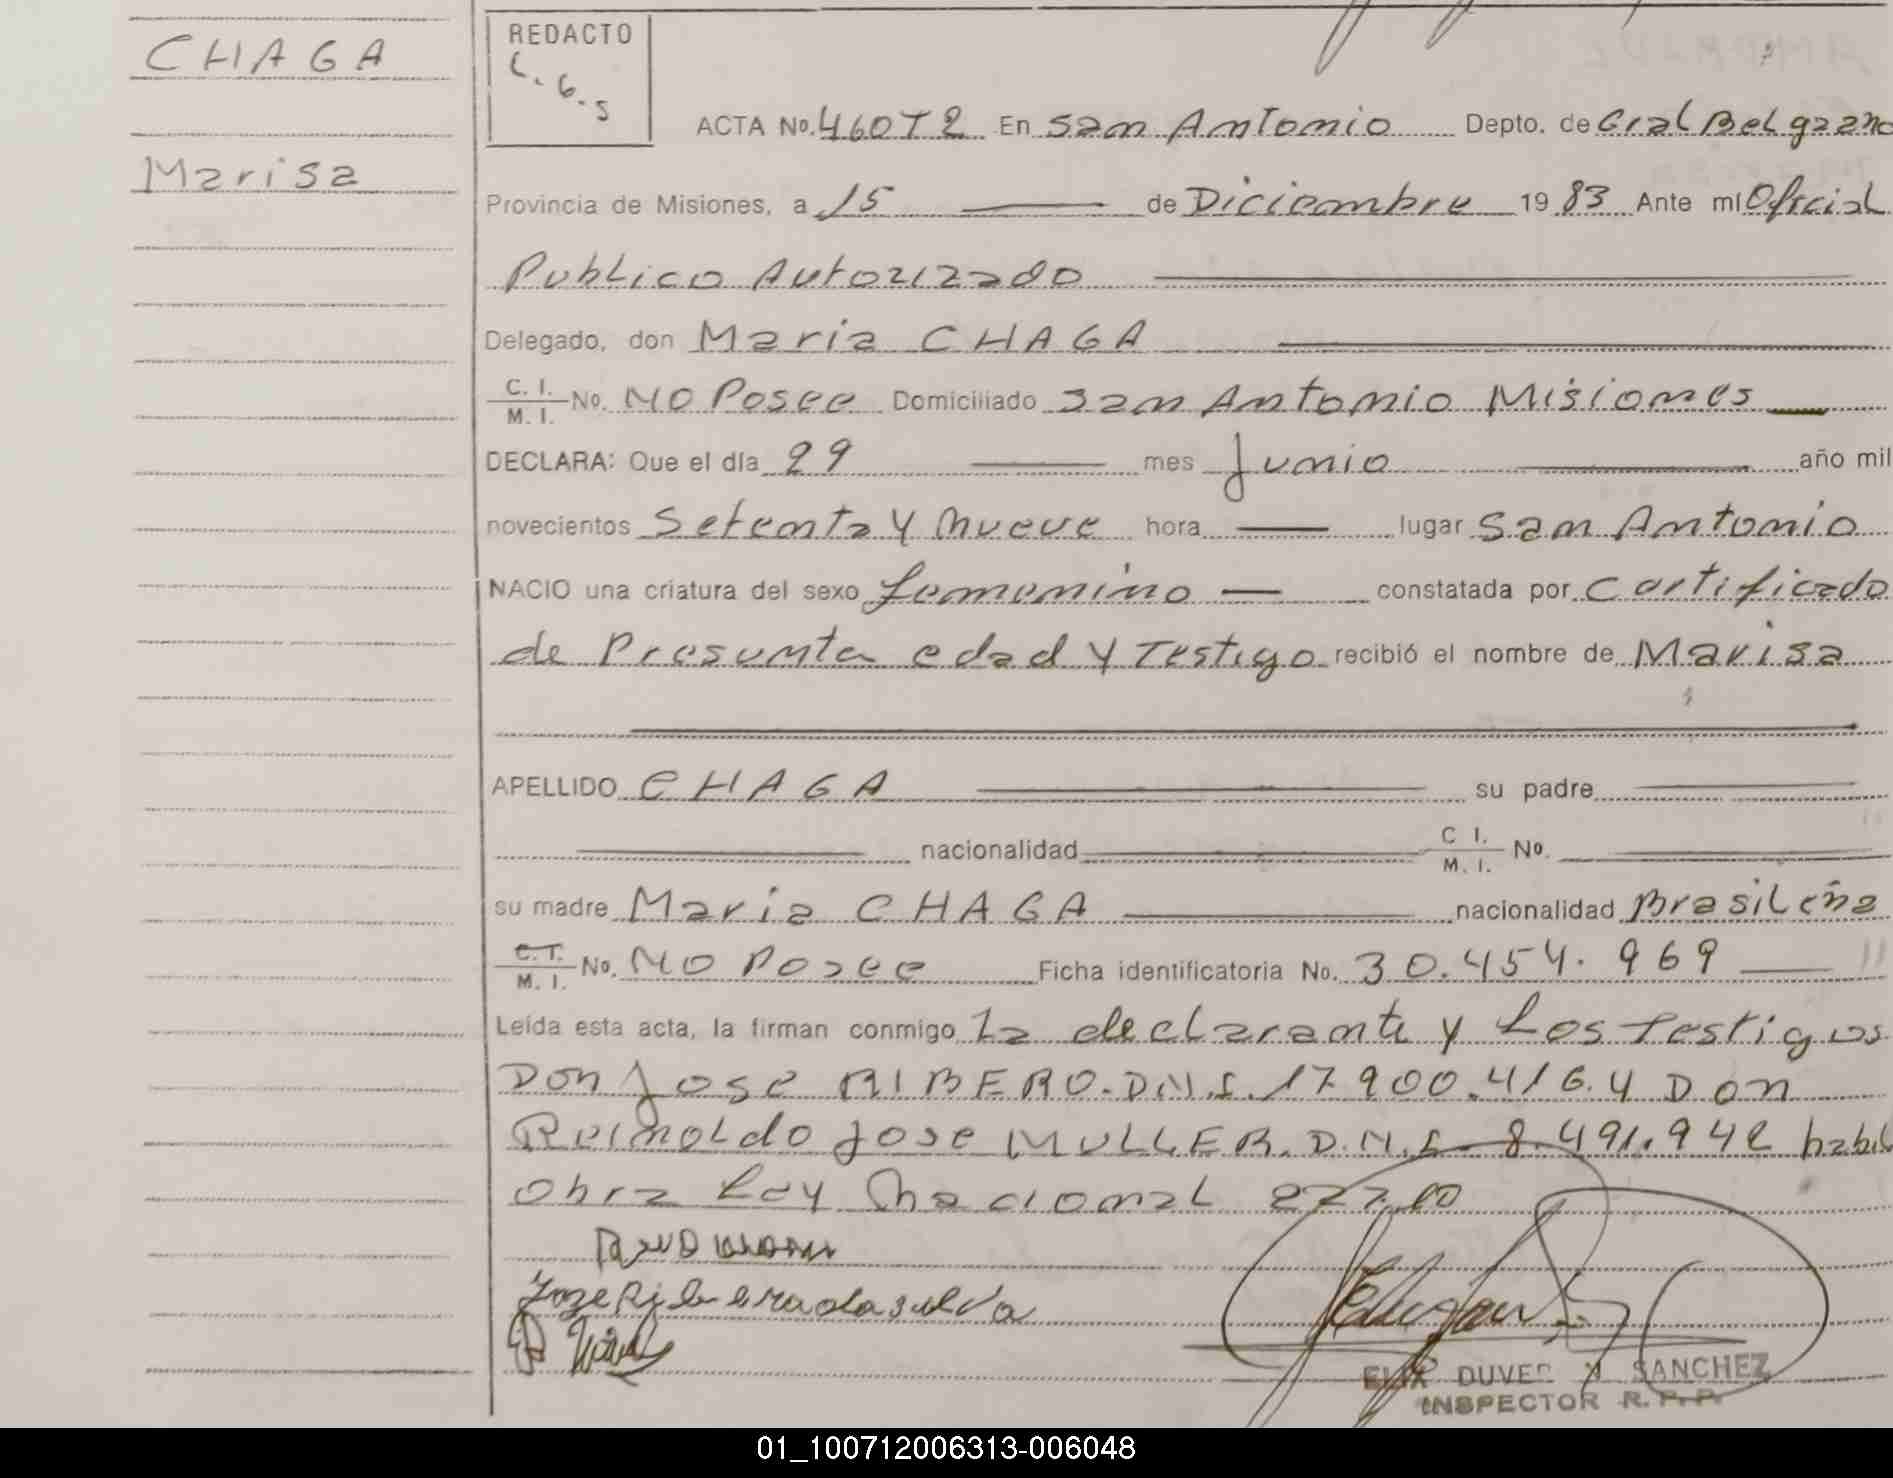 CHAGA
Marisa
REDACTO
C.G.S
ACTA No. 460T2 En San Antonio Depto. de Gral Belgrano
Provincia de Misiones, a 15 de Diciembre 19 83 Ante mi Oficial
Publico Autorizado
Delegado, don Maria CHAGA
C. I. M. I. No. No Posee Domiciliado San Antonio Misiones
DECLARA: Que el día 29 mes Junio año mil
novecientos Setenta y nueve hora lugar San Antonio
NACIO una criatura del sexo femenino constatada por Certificado
de Presunta edad y Testigo recibió el nombre de Marisa
APELLIDO CHAGA su padre
nacionalidad C I. M. I. No.
su madre Maria CHAGA nacionalidad Brasileña
C. I. M. I. No. No Posee Ficha identificatoria No. 30.454.969
Leída esta acta, la firman conmigo La declarante y Los Testigos
Don Jose RIBERO. D.N.I. 17.900.416. y Don
Reinoldo Jose MULLER. D.N.I. 8.491.942 habil
obra Ley Nacional
Joze Ribeira da silva
DUVER SANCHEZ
INSPECTOR R.P.P.
01_100712006313-006048